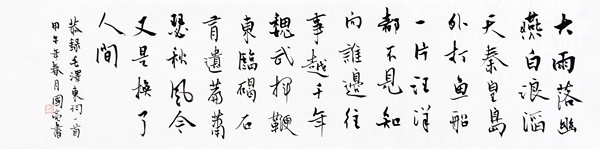 大雨落幽
燕白浪滔
天秦皇島
外打魚船
一片汪洋
都不見知
向誰邊往
事越千年
魏武揮鞭
東臨碣石
有遺篇蕭
瑟秋風今
又是換了
人間
恭錄毛澤東詞一首
甲午年春月國書